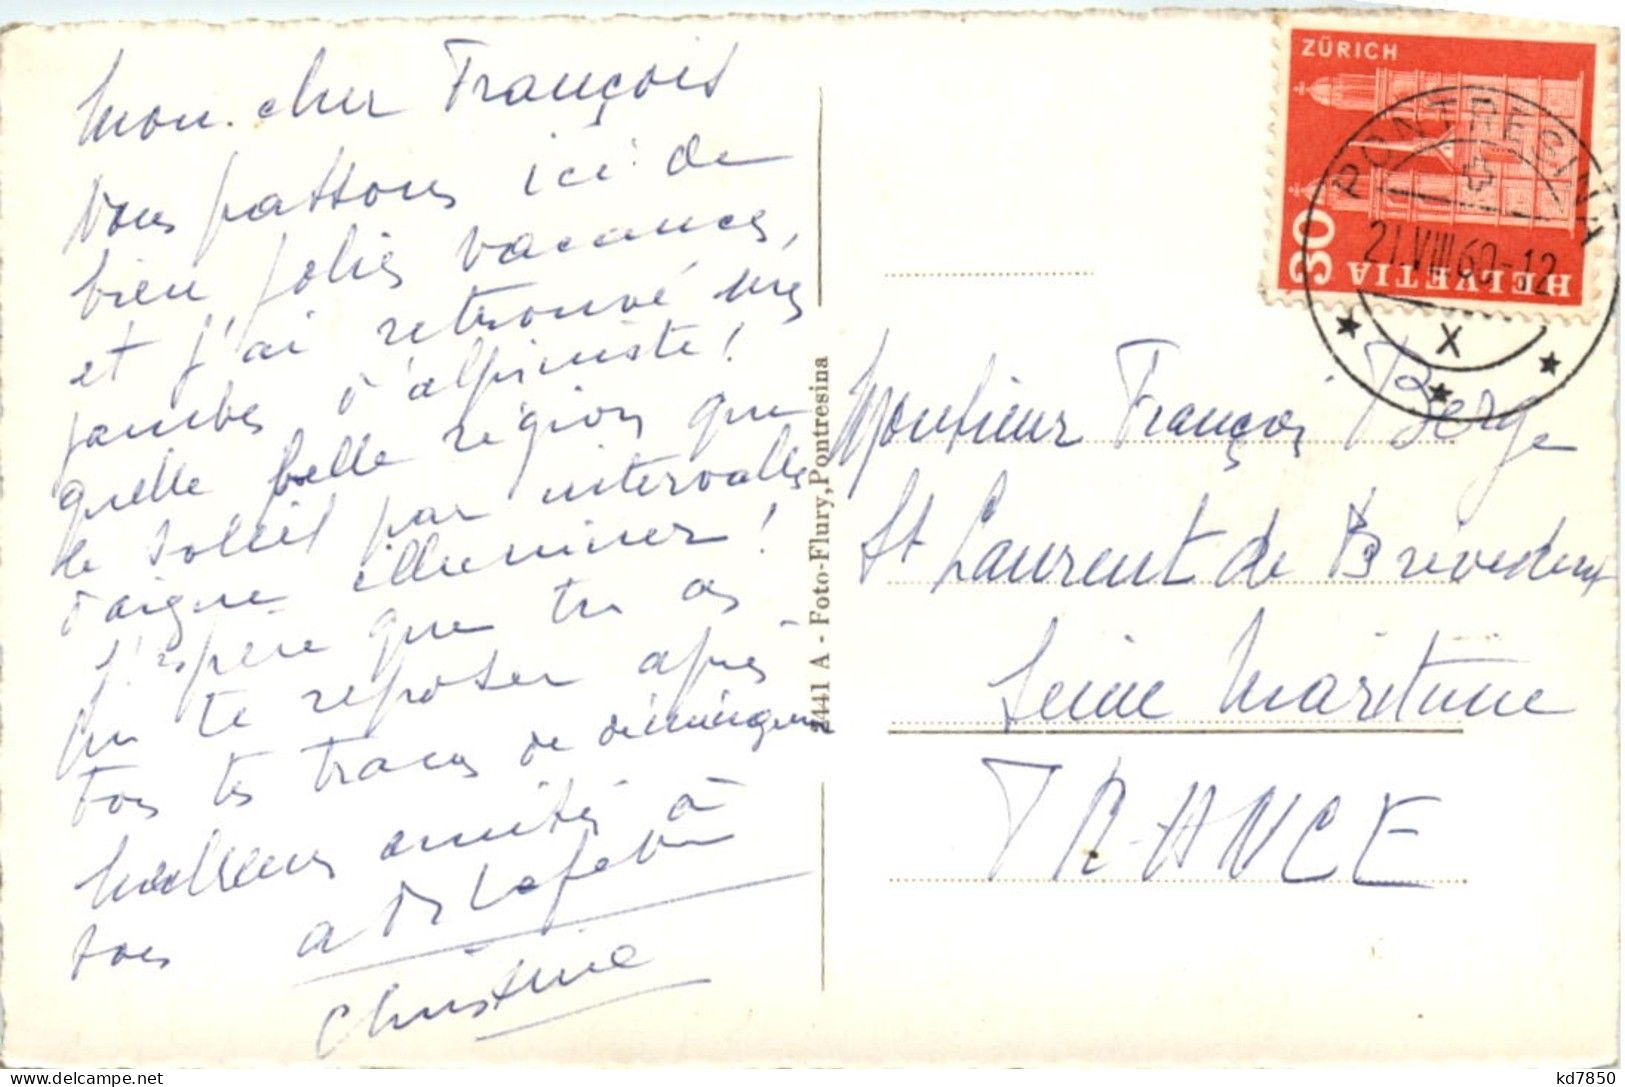 Mon cher François
Nous passons ici de
bien jolies vacances,
et j'ai retrouvé mes
jambes d'alpiniste!
quelle belle région que
le soleil par intervalles
daigne illuminer!
J'espère que tu as
pu te reposer après
tous tes tracas de déménagement
Meilleures amitiés à
tous
Christine
2441 A - Foto-Flury, Pontresina
ZÜRICH
30
HELVETIA
PONTRESINA
21.VIII.60-12
X
Monsieur François Berge
St Laurent de Brèvedent
Seine Maritime
FRANCE
kd7850